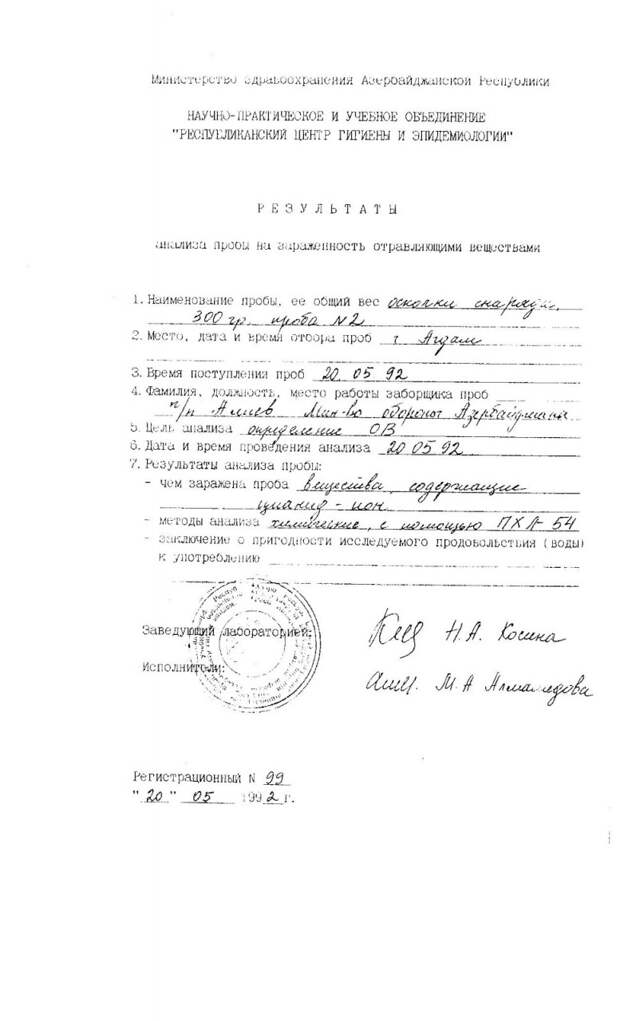 Министерство здравоохранения Азербайджанской Республики
НАУЧНО-ПРАКТИЧЕСКОЕ И УЧЕБНОЕ ОБЪЕДИНЕНИЕ
"РЕСПУБЛИКАНСКИЙ ЦЕНТР ГИГИЕНЫ И ЭПИДЕМИОЛОГИИ"
Р Е З У Л Ь Т А Т Ы
анализа пробы на зараженность отравляющими веществами
1. Наименование пробы, ее общий вес осколки снаряда,
300 гр. проба N2
2. Место, дата и время отбора проб г. Агдам
3. Время поступления проб 20.05.92
4. Фамилия, должность, место работы заборщика проб
п/п Алиев Мин-во обороны Азербайджана
5. Цель анализа определение ОВ
6. Дата и время проведения анализа 20.05.92
7. Результаты анализа пробы:
- чем заражена проба вещества, содержащие
цианид-ион
- методы анализа химические, с помощью ПХЛ-54
- заключение о пригодности исследуемого продовольствия (воды)
к употреблению
Заведующий лабораторией: Н.А. Косина
Исполнители: М.А Алмамедова
Регистрационный N 99
"20" 05 1992 г.